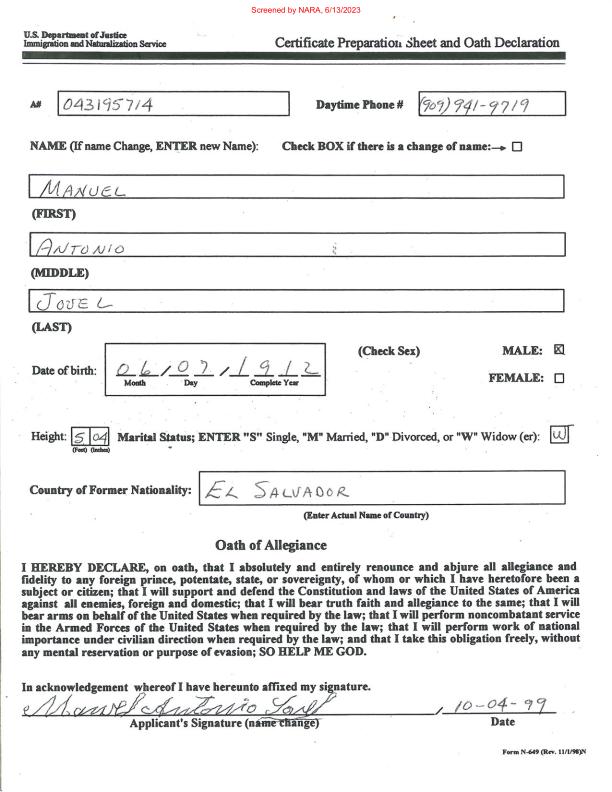 Screened by NARA, 6/13/2023
U.S. Department of Justice
Immigration and Naturalization Service
Certificate Preparation Sheet and Oath Declaration
A# 043195714 Daytime Phone # (909) 941-9719
NAME (If name Change, ENTER new Name): Check BOX if there is a change of name:→ ☐
MANUEL
(FIRST)
ANTONIO
(MIDDLE)
JOVEL
(LAST)
(Check Sex) MALE: ☒
Date of birth: 06/07/1912
Month Day Complete Year
FEMALE: ☐
Height: 5 04 Marital Status; ENTER "S" Single, "M" Married, "D" Divorced, or "W" Widow (er): W
(Feet) (Inches)
Country of Former Nationality: EL SALVADOR
(Enter Actual Name of Country)
Oath of Allegiance
I HEREBY DECLARE, on oath, that I absolutely and entirely renounce and abjure all allegiance and
fidelity to any foreign prince, potentate, state, or sovereignty, of whom or which I have heretofore been a
subject or citizen; that I will support and defend the Constitution and laws of the United States of America
against all enemies, foreign and domestic; that I will bear truth faith and allegiance to the same; that I will
bear arms on behalf of the United States when required by the law; that I will perform noncombatant service
in the Armed Forces of the United States when required by the law; that I will perform work of national
importance under civilian direction when required by the law; and that I take this obligation freely, without
any mental reservation or purpose of evasion; SO HELP ME GOD.
In acknowledgement whereof I have hereunto affixed my signature.
Manuel Antonio Jovel , 10-04-99
Applicant's Signature (name change) Date
Form N-649 (Rev. 11/1/98)N